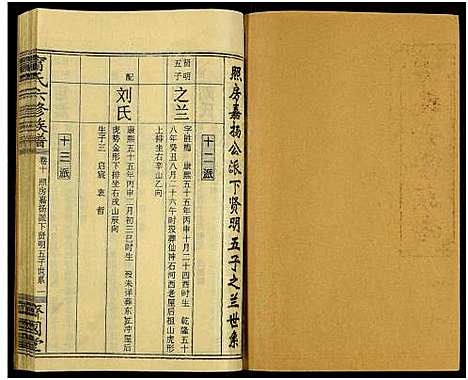 照房嘉扬公派下贤明五子之兰世系
十二派
贤明
五子
之兰
字胜梅 康熙五十五年丙申十月二十四酉时生 乾隆五十
八年癸丑八月二十六午时殁葬仙神石河西老屋后祖山虎形
上排坐右辛山乙向
配
刘氏
康熙五十五年丙申二月初三巳时生 殁朱洋葬东冲屋后
虎势金形下排坐右戌山辰向
生子三 启宸 衷 哲
十三派
氏六修族谱
卷十 照房嘉扬派下贤明五子世系 一